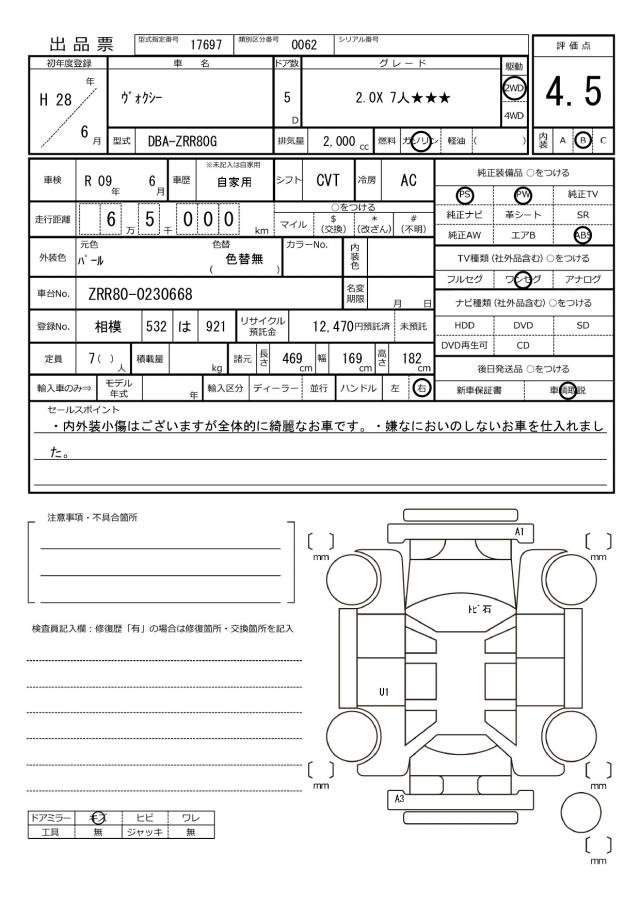 出品票 型式指定番号 17697 類別区分番号 0062 シリアル番号
評価点
4.5
内装 A B C
初年度登録 車名 ドア数 グレード 駆動
H 28 年 6 月
ヴォクシー 5 D 2.0X 7人★★★ 2WD
4WD
型式 DBA-ZRR80G 排気量 2,000 cc 燃料 ガソリン 軽油 ( )
車検 R 09 年 6 月 車歴 ※未記入は自家用 自家用 シフト CVT 冷房 AC
走行距離 6 5 万 千 0 0 0 km
○をつける
マイル $ (交換) * (改ざん) # (不明)
外装色 元色 パール 色替 ( 色替無 ) カラーNo. 内装色
車台No. ZRR80-0230668 名変期限 月 日
登録No. 相模 532 は 921 リサイクル預託金 12,470円預託済 未預託
定員 7( ) 人 積載量 kg 諸元 長さ 469 cm 幅 169 cm 高さ 182 cm
輸入車のみ⇒ モデル年式 年 輸入区分 ディーラー 並行 ハンドル 左 右
純正装備品 ○をつける
PS PW 純正TV
純正ナビ 革シート SR
純正AW エアB ABS
TV種類 (社外品含む) ○をつける
フルセグ ワンセグ アナログ
ナビ種類 (社外品含む) ○をつける
HDD DVD SD
DVD再生可 CD
後日発送品 ○をつける
新車保証書 車輌取説
セールスポイント
・内外装小傷はございますが全体的に綺麗なお車です。・嫌なにおいのしないお車を仕入れまし
た。
注意事項・不具合箇所
検査員記入欄：修復歴「有」の場合は修復箇所・交換箇所を記入
ドアミラー キズ ヒビ ワレ
工具 無 ジャッキ 無
A1
[ ] mm
[ ] mm
トビ石
U1
[ ] mm
[ ] mm
A3
[ ] mm